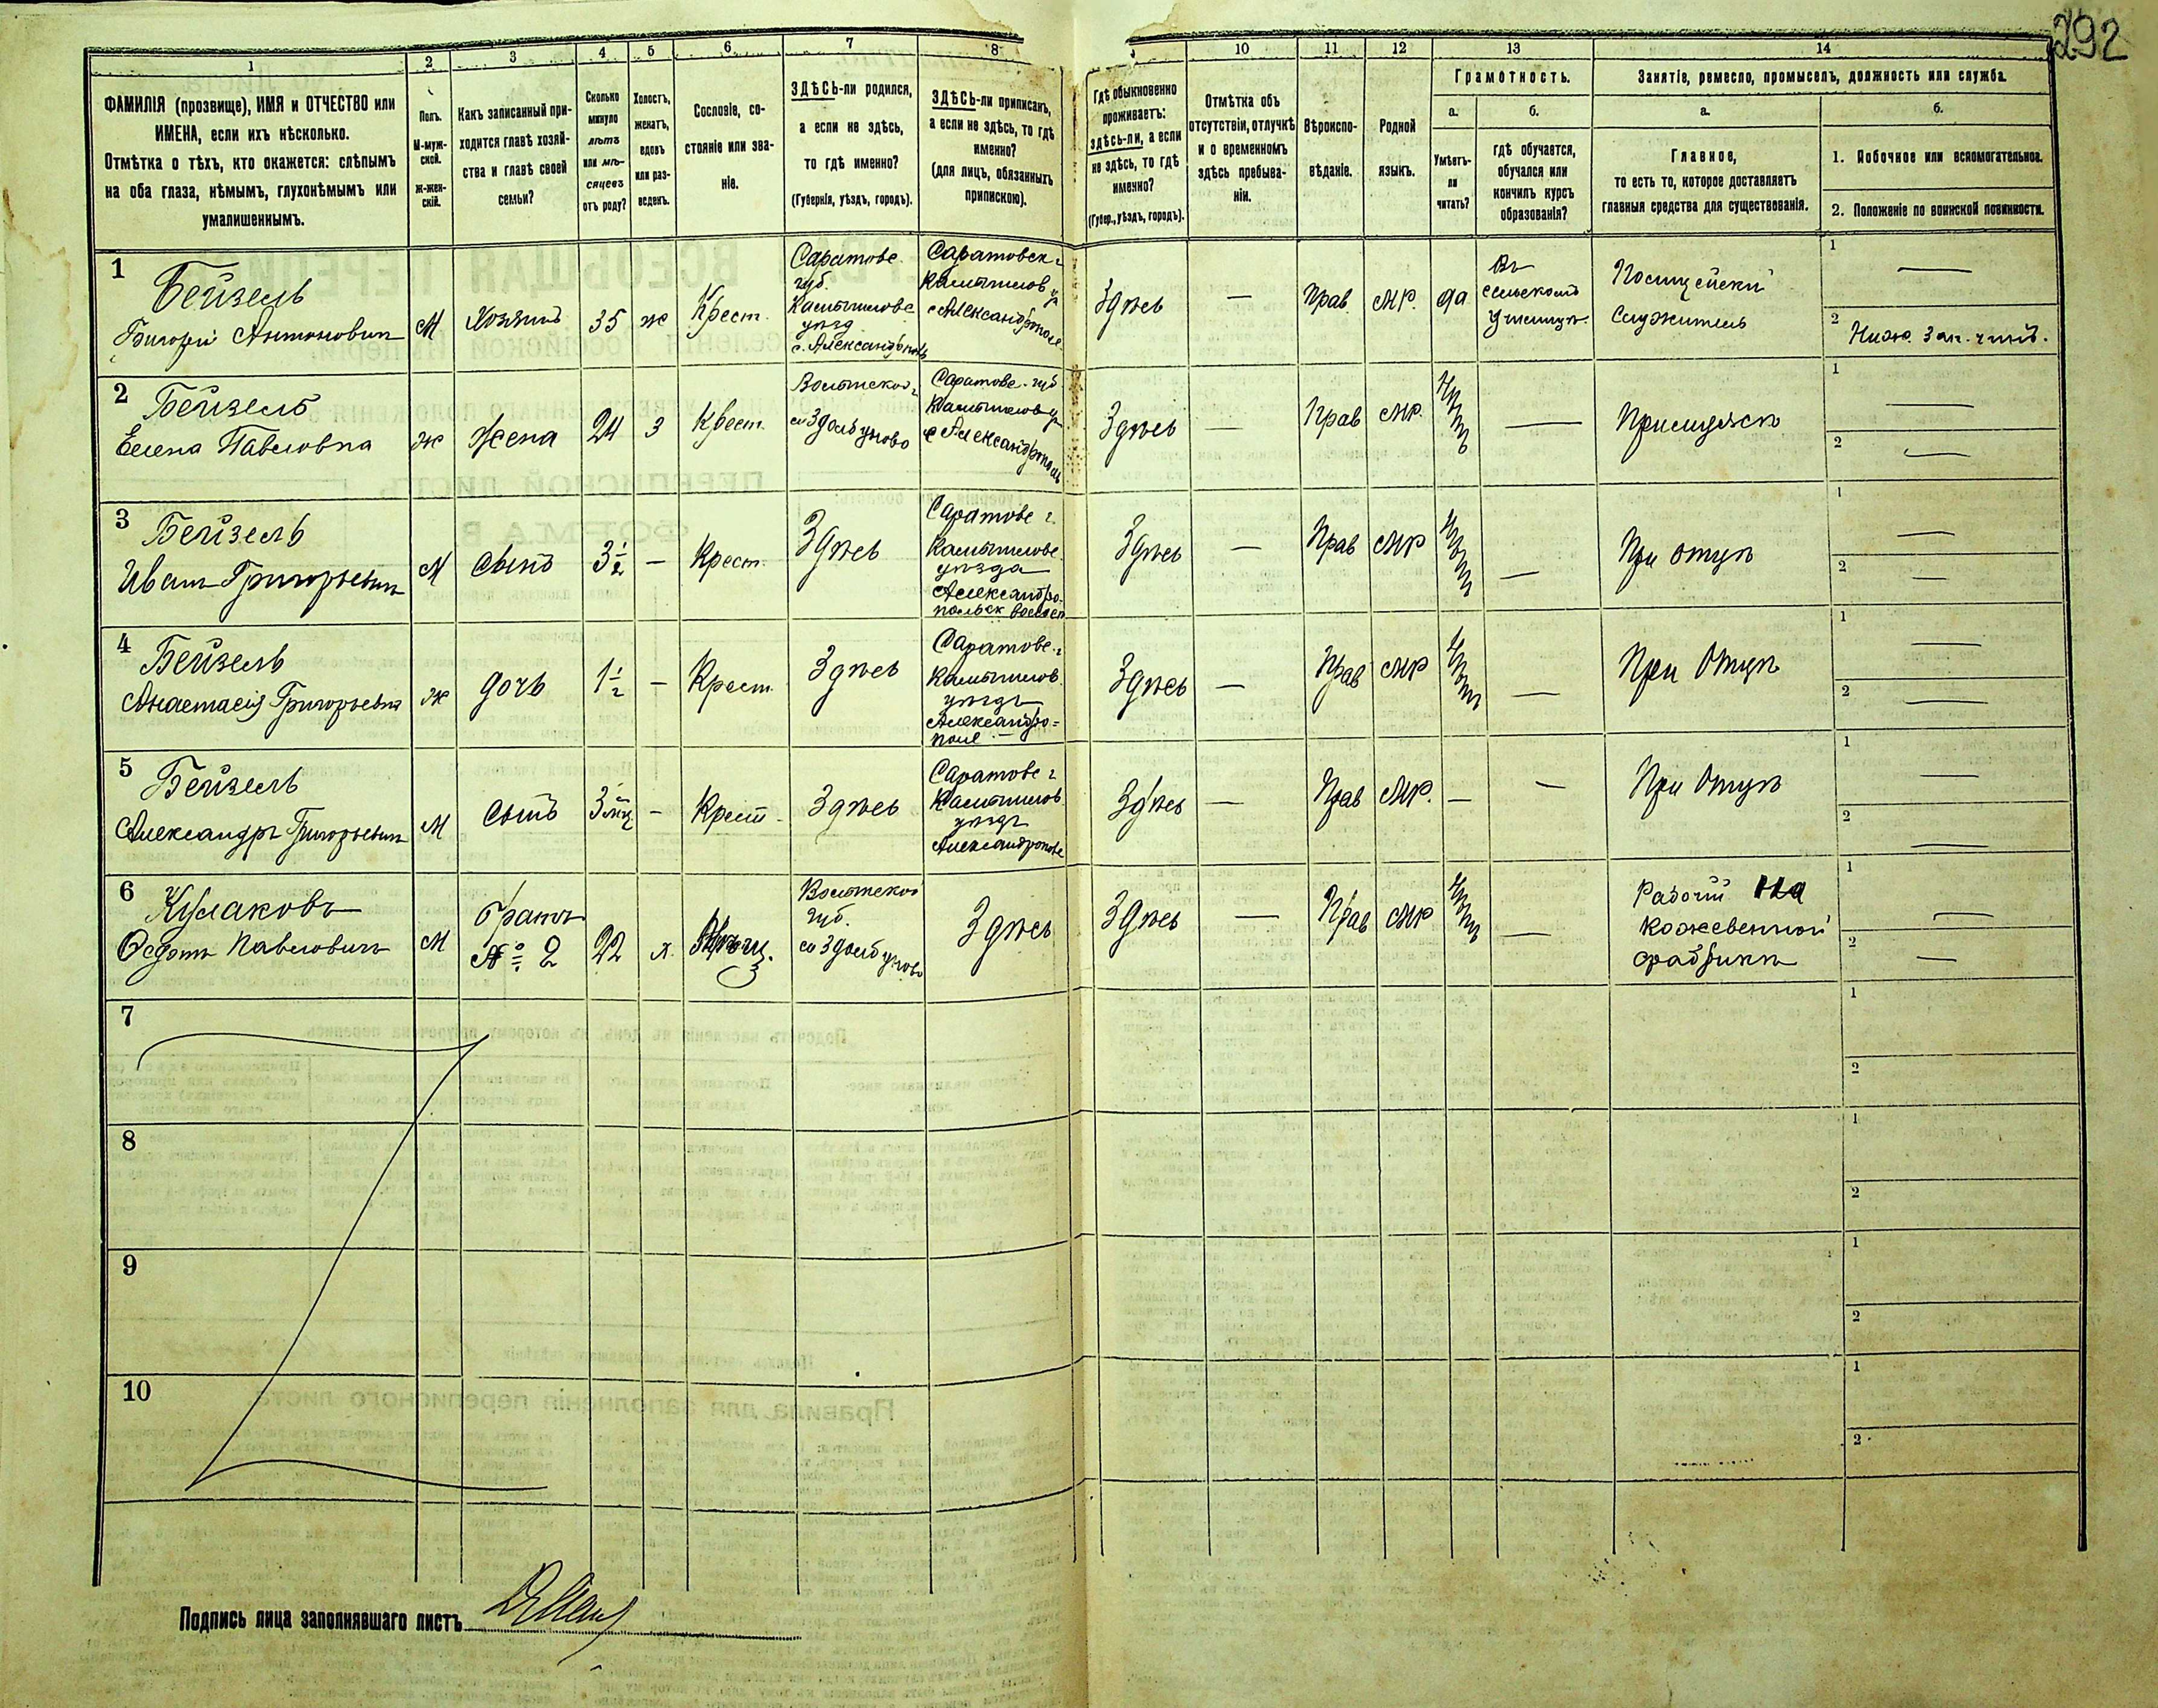 292
1 2 3 4 5 6 7 8 10 11 12 13 14
ФАМИЛІЯ (прозвище), ИМЯ и ОТЧЕСТВО или
ИМЕНА, если ихъ нѣсколько.
Отмѣтка о тѣхъ, кто окажется: слѣпымъ
на оба глаза, нѣмымъ, глухонѣмымъ или
умалишеннымъ.
Полъ.
М-муж-
ской.
ж-жен-
скій.
Какъ записанный при-
ходится главѣ хозяй-
ства и главѣ своей
семьи?
Сколько
минуло
лѣтъ
или мѣ-
сяцевъ
отъ роду?
Холостъ,
женатъ,
вдовъ
или раз-
веденъ.
Сословіе, со-
стояніе или зва-
ніе.
ЗДѢСЬ-ли родился,
а если не здѣсь,
то гдѣ именно?
(Губернія, уѣздъ, городъ).
ЗДѢСЬ-ли приписанъ,
а если не здѣсь, то гдѣ
именно?
(для лицъ, обязанныхъ
припискою).
Гдѣ обыкновенно
проживаетъ:
здѣсь-ли, а если
не здѣсь, то гдѣ
именно?
(Губер., уѣздъ, городъ).
Отмѣтка объ
отсутствіи, отлучкѣ
и о временномъ
здѣсь пребыва-
ніи.
Вѣроиспо-
вѣданіе.
Родной
языкъ.
Грамотность.
а.
Умѣетъ-
ли
читать?
б.
гдѣ обучается,
обучался или
кончилъ курсъ
образованія?
Занятіе, ремесло, промыселъ, должность или служба.
а.
Главное,
то есть то, которое доставляетъ
главныя средства для существованія.
б.
1. Побочное или вспомогательное.
2. Положеніе по воинской повинности.
1
Бейзель
Григорій Антоновичъ
М
Хозяинъ
35
ж
Крест.
Саратовс.
губ.
Камышинс
уѣзд
с. Александрополь
Саратовск г
Камышинс у
с Александрополе
Здѣсь
—
Прав.
МР.
да
Въ
сельскомъ
училищѣ.
Полицейскій
Служитель
1 —
2 Ниж. Зап. чинъ.
2
Бейзель
Елена Павловна
ж
Жена
24
З
Крест.
Волынской г
с. Здолбуново
Саратовс. губ
Камышинс у
с Александрополь
Здѣсь
—
Прав
МР.
нѣтъ
—
При мужѣ
1 —
2 —
3
Бейзель
Иванъ Григорьевичъ
М
Сынъ
3½
—
Крест.
Здѣсь
Саратовс г.
Камышинс
уѣзда
Александро-
польск волост
Здѣсь
—
Прав
МР
нѣтъ
—
При отцѣ
1 —
2 —
4
Бейзель
Анастасія Григорьевна
ж
дочь
1½
—
Крест.
Здѣсь
Саратовс. г
Камышинс.
уѣздъ
Александро-
поле
Здѣсь
—
Прав
МР
нѣтъ
—
При Отцѣ
1 —
2 —
5
Бейзель
Александръ Григорьевичъ
М
Сынъ
3 мц
—
Крест.
Здѣсь
Саратовс г
Камышинс
уѣздъ
Александрополе
Здѣсь
—
Прав
МР.
—
—
При Отцѣ
1 —
2 —
6
Кулаковъ
Ѳедотъ Павловичъ
М
братъ
№ 2
22
х.
Волынской
губ.
с Здолбуново
Здѣсь
Здѣсь
—
Прав
МР
нѣтъ
—
Рабочій на
кожевенной
фабрикѣ
1 —
2 —
7
1
2
8
1
2
9
1
2
10
1
2
Подпись лица заполнявшаго листъ